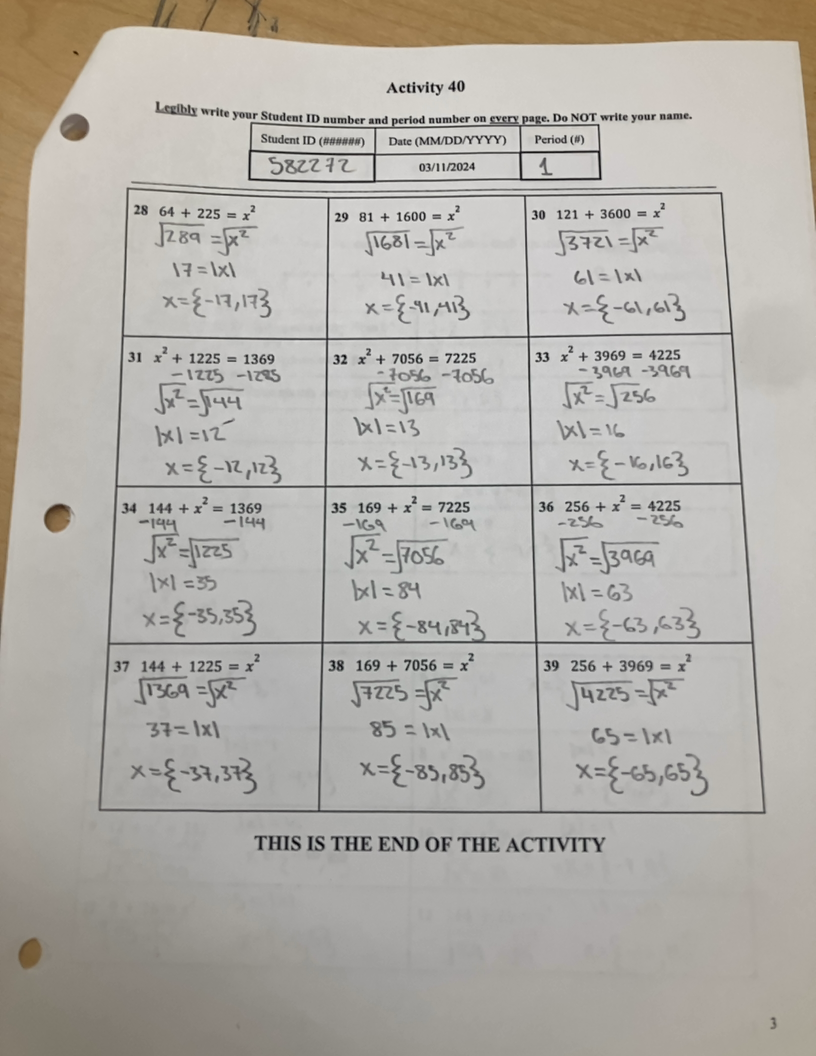 Activity 40
Legibly write your Student ID number and period number on every page. Do NOT write your name.
Student ID (######) Date (MM/DD/YYYY) Period (#)
582272 03/11/2024 1
28 64 + 225 = x²
√289 = √x²
17 = |x|
x = {-17, 17}
29 81 + 1600 = x²
√1681 = √x²
41 = |x|
x = {-41, 41}
30 121 + 3600 = x²
√3721 = √x²
61 = |x|
x = {-61, 61}
31 x² + 1225 = 1369
-1225 -1225
√x² = √144
|x| = 12
x = {-12, 12}
32 x² + 7056 = 7225
-7056 -7056
√x² = √169
|x| = 13
x = {-13, 13}
33 x² + 3969 = 4225
-3969 -3969
√x² = √256
|x| = 16
x = {-16, 16}
34 144 + x² = 1369
-144 -144
√x² = √1225
|x| = 35
x = {-35, 35}
35 169 + x² = 7225
-169 -169
√x² = √7056
|x| = 84
x = {-84, 84}
36 256 + x² = 4225
-256 -256
√x² = √3969
|x| = 63
x = {-63, 63}
37 144 + 1225 = x²
√1369 = √x²
37 = |x|
x = {-37, 37}
38 169 + 7056 = x²
√7225 = √x²
85 = |x|
x = {-85, 85}
39 256 + 3969 = x²
√4225 = √x²
65 = |x|
x = {-65, 65}
THIS IS THE END OF THE ACTIVITY
3